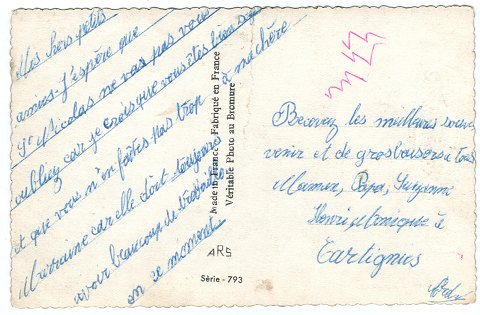 Mes chers petits
amis. J'espère que
St Nicolas ne vas pas vous
oubliez car je crois que vous êtes bien sage
et que vous n'en faites pas trop à ma chère
Marraine car elle doit toujours
avoir beaucoup de travaille
en ce moment
Made in France - Fabriqué en France
Véritable Photo au Bromure
ARS
Série - 793
Recevez les meilleurs souve
venir et de gros baisers à tous
Maman, Papa, Suzanne
Henri à
Cartignies